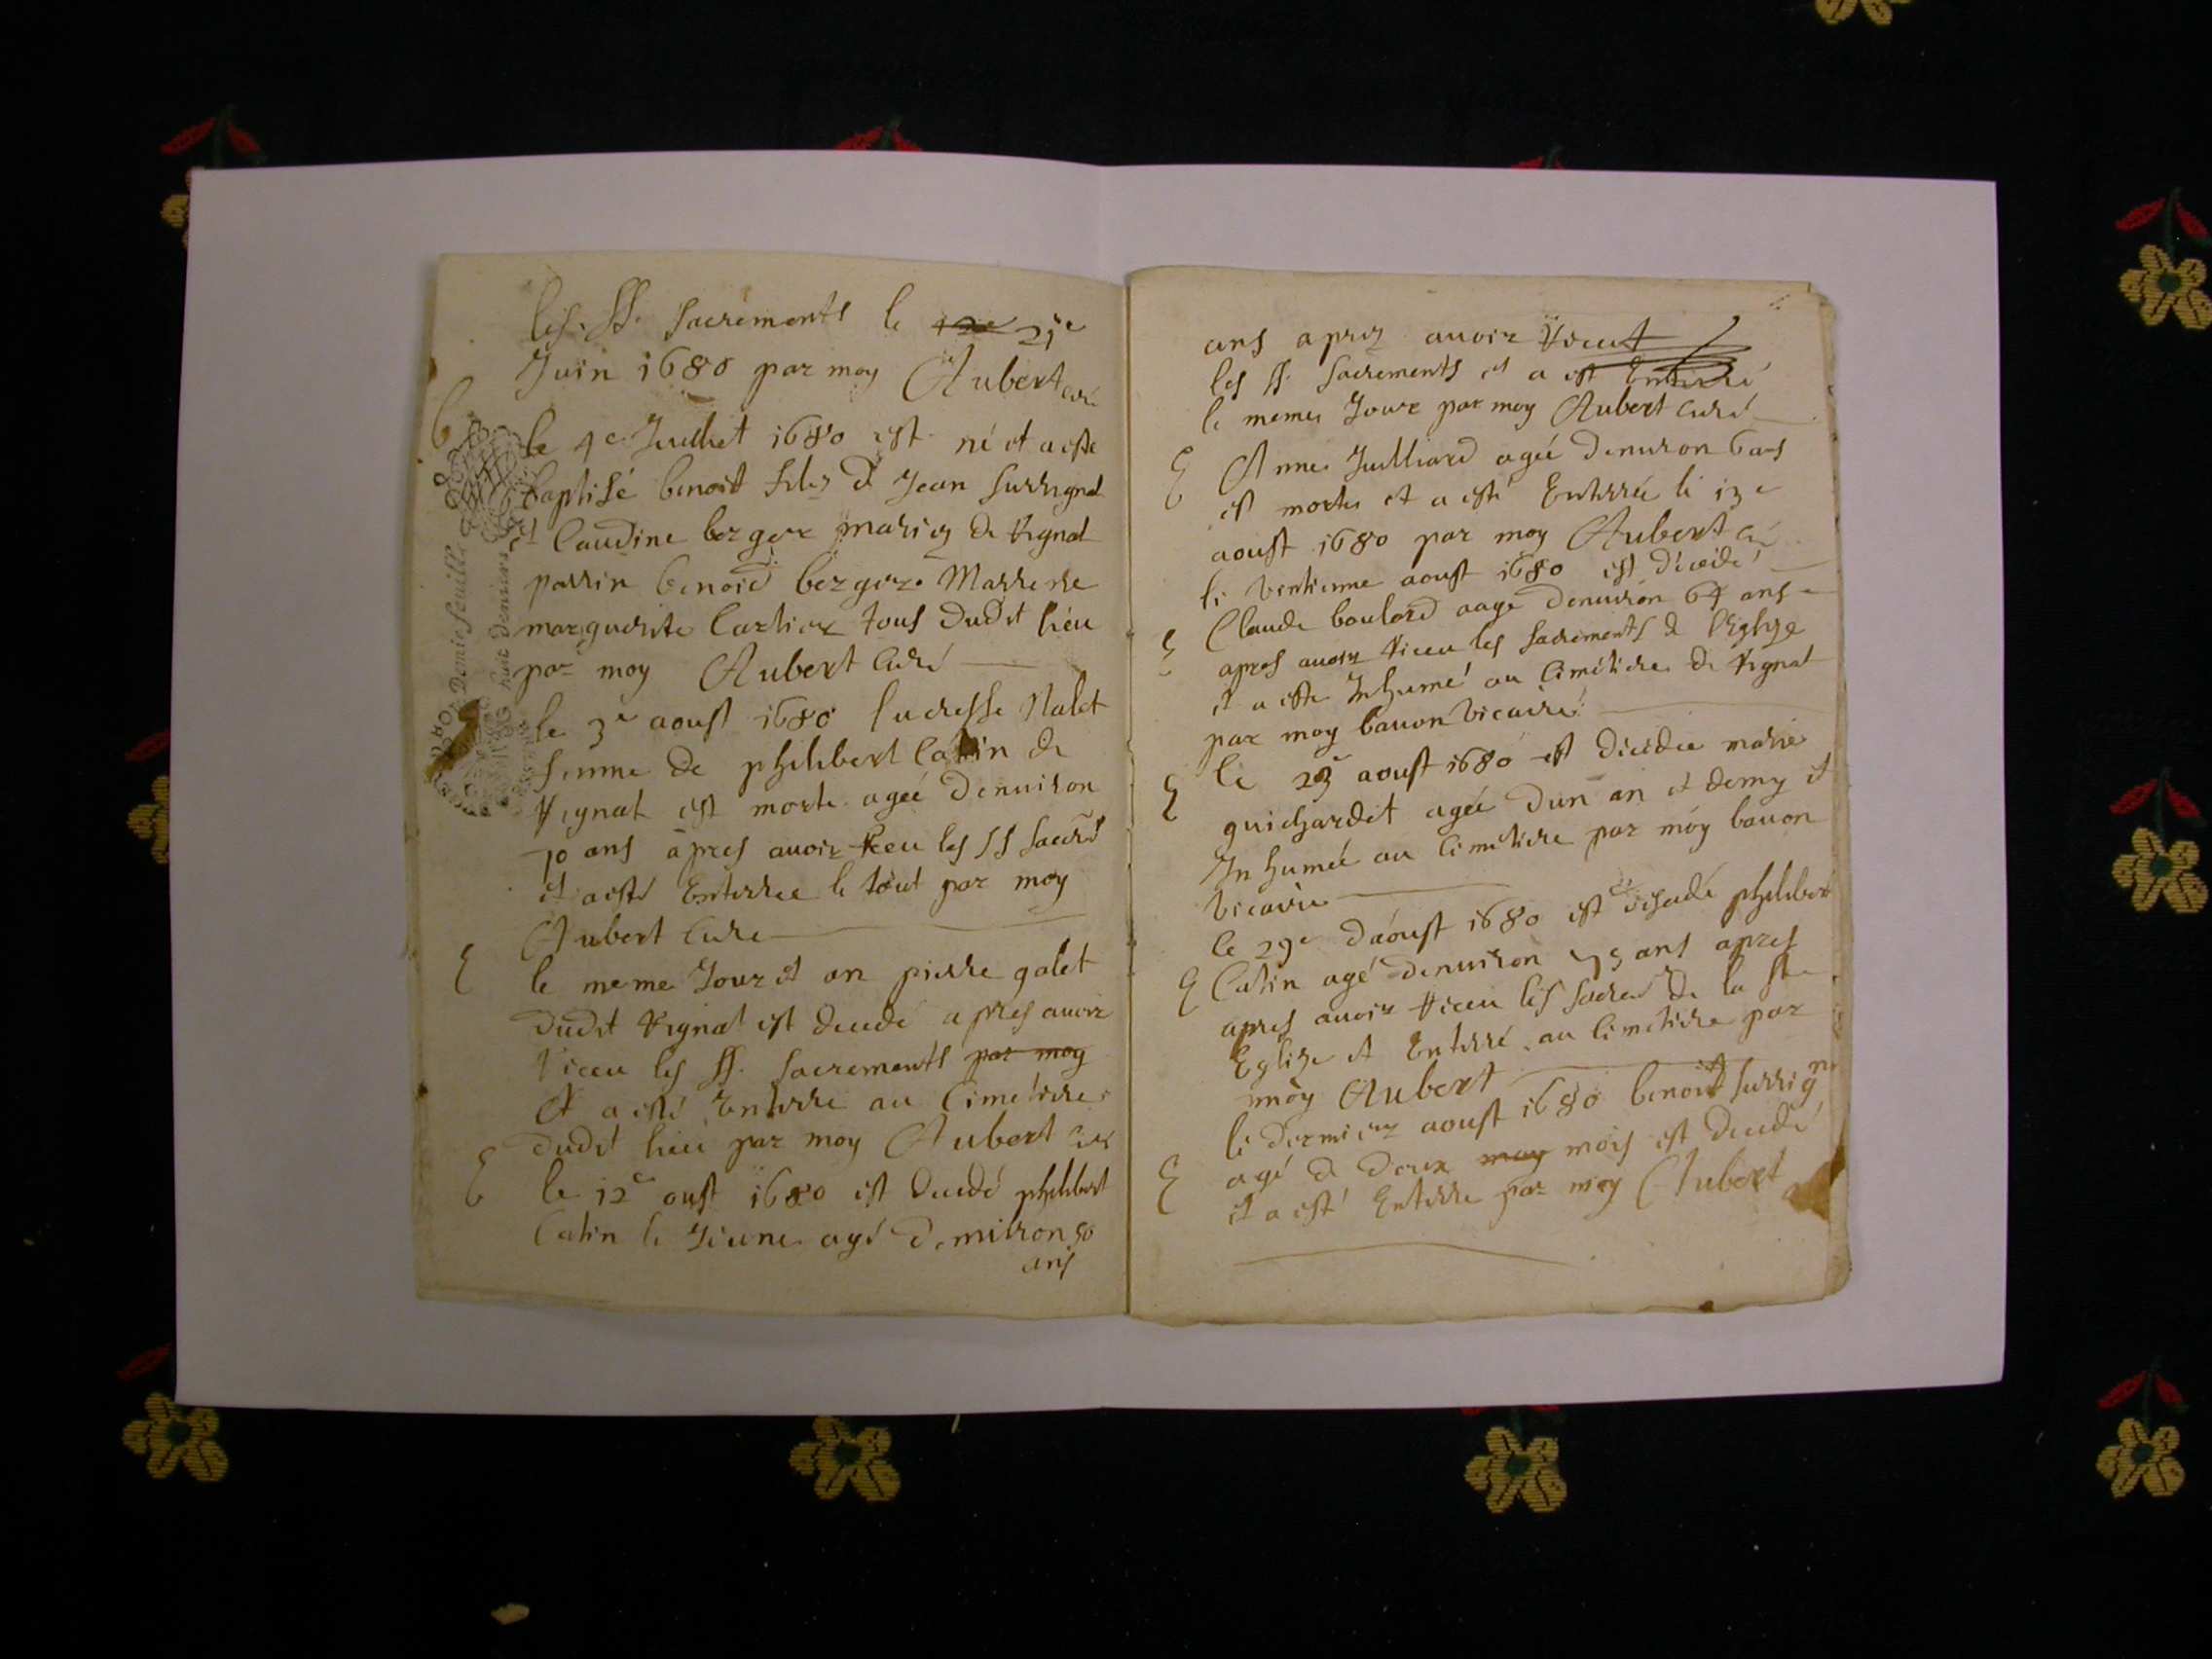 les. SS. sacrements le 12e 21e
Juin 1680 par moy Aubert curé
b
le 4e Juillet 1680 est né et a esté
baptisé benoit filz de Jean surrignat
et Claudine berger mariez de Vignat
parrin benoid berger. Marrene
marguerite Cartier tous dudit lieu
par moy Aubert Curé
le 3e aoust 1680 lucresse Nalet
femme de philibert Catin de
Vignat est morte agée denuiron
70 ans apres auoir receu les SS sacrts
et a esté Enterree le tout par moy
Aubert Cure
E le meme Jour et an pierre galet
dudit Vignat est decedé apres auoir
receu les SS. sacrements par moy
Et a esté Enterre au Cimetiere
dudit lieu par moy Aubert Curé
E le 12e oust 1680 est decedé philibert
Catin le Jeune agé denuiron 50
ans
Demie feuille
huit deniers
ans aprez auoir receu
les SS. sacrements et a est Enterré
le meme Jour par moy Aubert Curé
E Anne Juilliard agée denuiron 6 ans
est morte et a esté Enterrée le 13e
aoust 1680 par moy Aubert Cu
le ventienme aoust 1680 est décedé
E Claude boulard aage denuiron 64 ans
apres auoir receu les sacrements de l'Eglize
et a este Inhumé au Cimétiere de Vignat
par moy bauon vicairé
E le 23e aoust 1680 est décédée marie
guichardet agée dun an et demy et
Inhumée au Cimetiere par moy bauon
vicaire
le 29e daoust 1680 est décedé philibert
E Catin agé denuiron 75 ans apres
apres auoir receu les sacre de la ste
Eglize et Enterré au Cimetiere par
moy Aubert
le dernier aoust 1680 benoit surrign
E agé de deux may mois est decedé
et a esté Enterre par moy Aubert